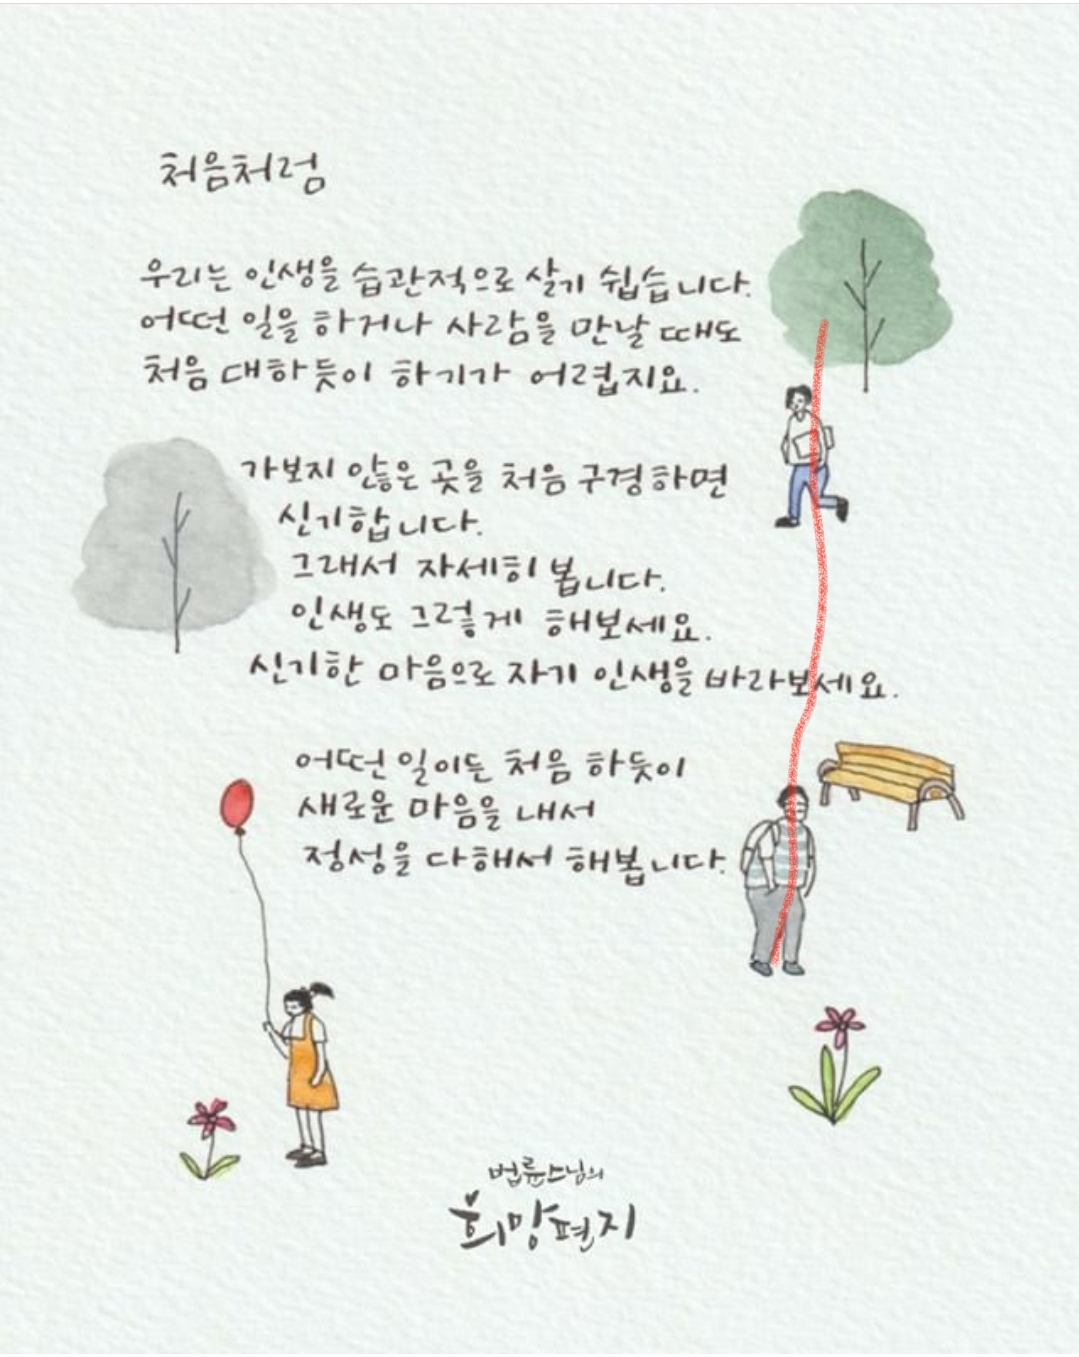 처음처럼
우리는 인생을 습관적으로 살기 쉽습니다.
어떤 일을 하거나 사람을 만날 때도
처음 대하듯이 하기가 어렵지요.
가보지 않은 곳을 처음 구경하면
신기합니다.
그래서 자세히 봅니다.
인생도 그렇게 해보세요.
신기한 마음으로 자기 인생을 바라보세요.
어떤 일이든 처음 하듯이
새로운 마음을 내서
정성을 다해서 해봅니다.
법륜스님의
희망편지